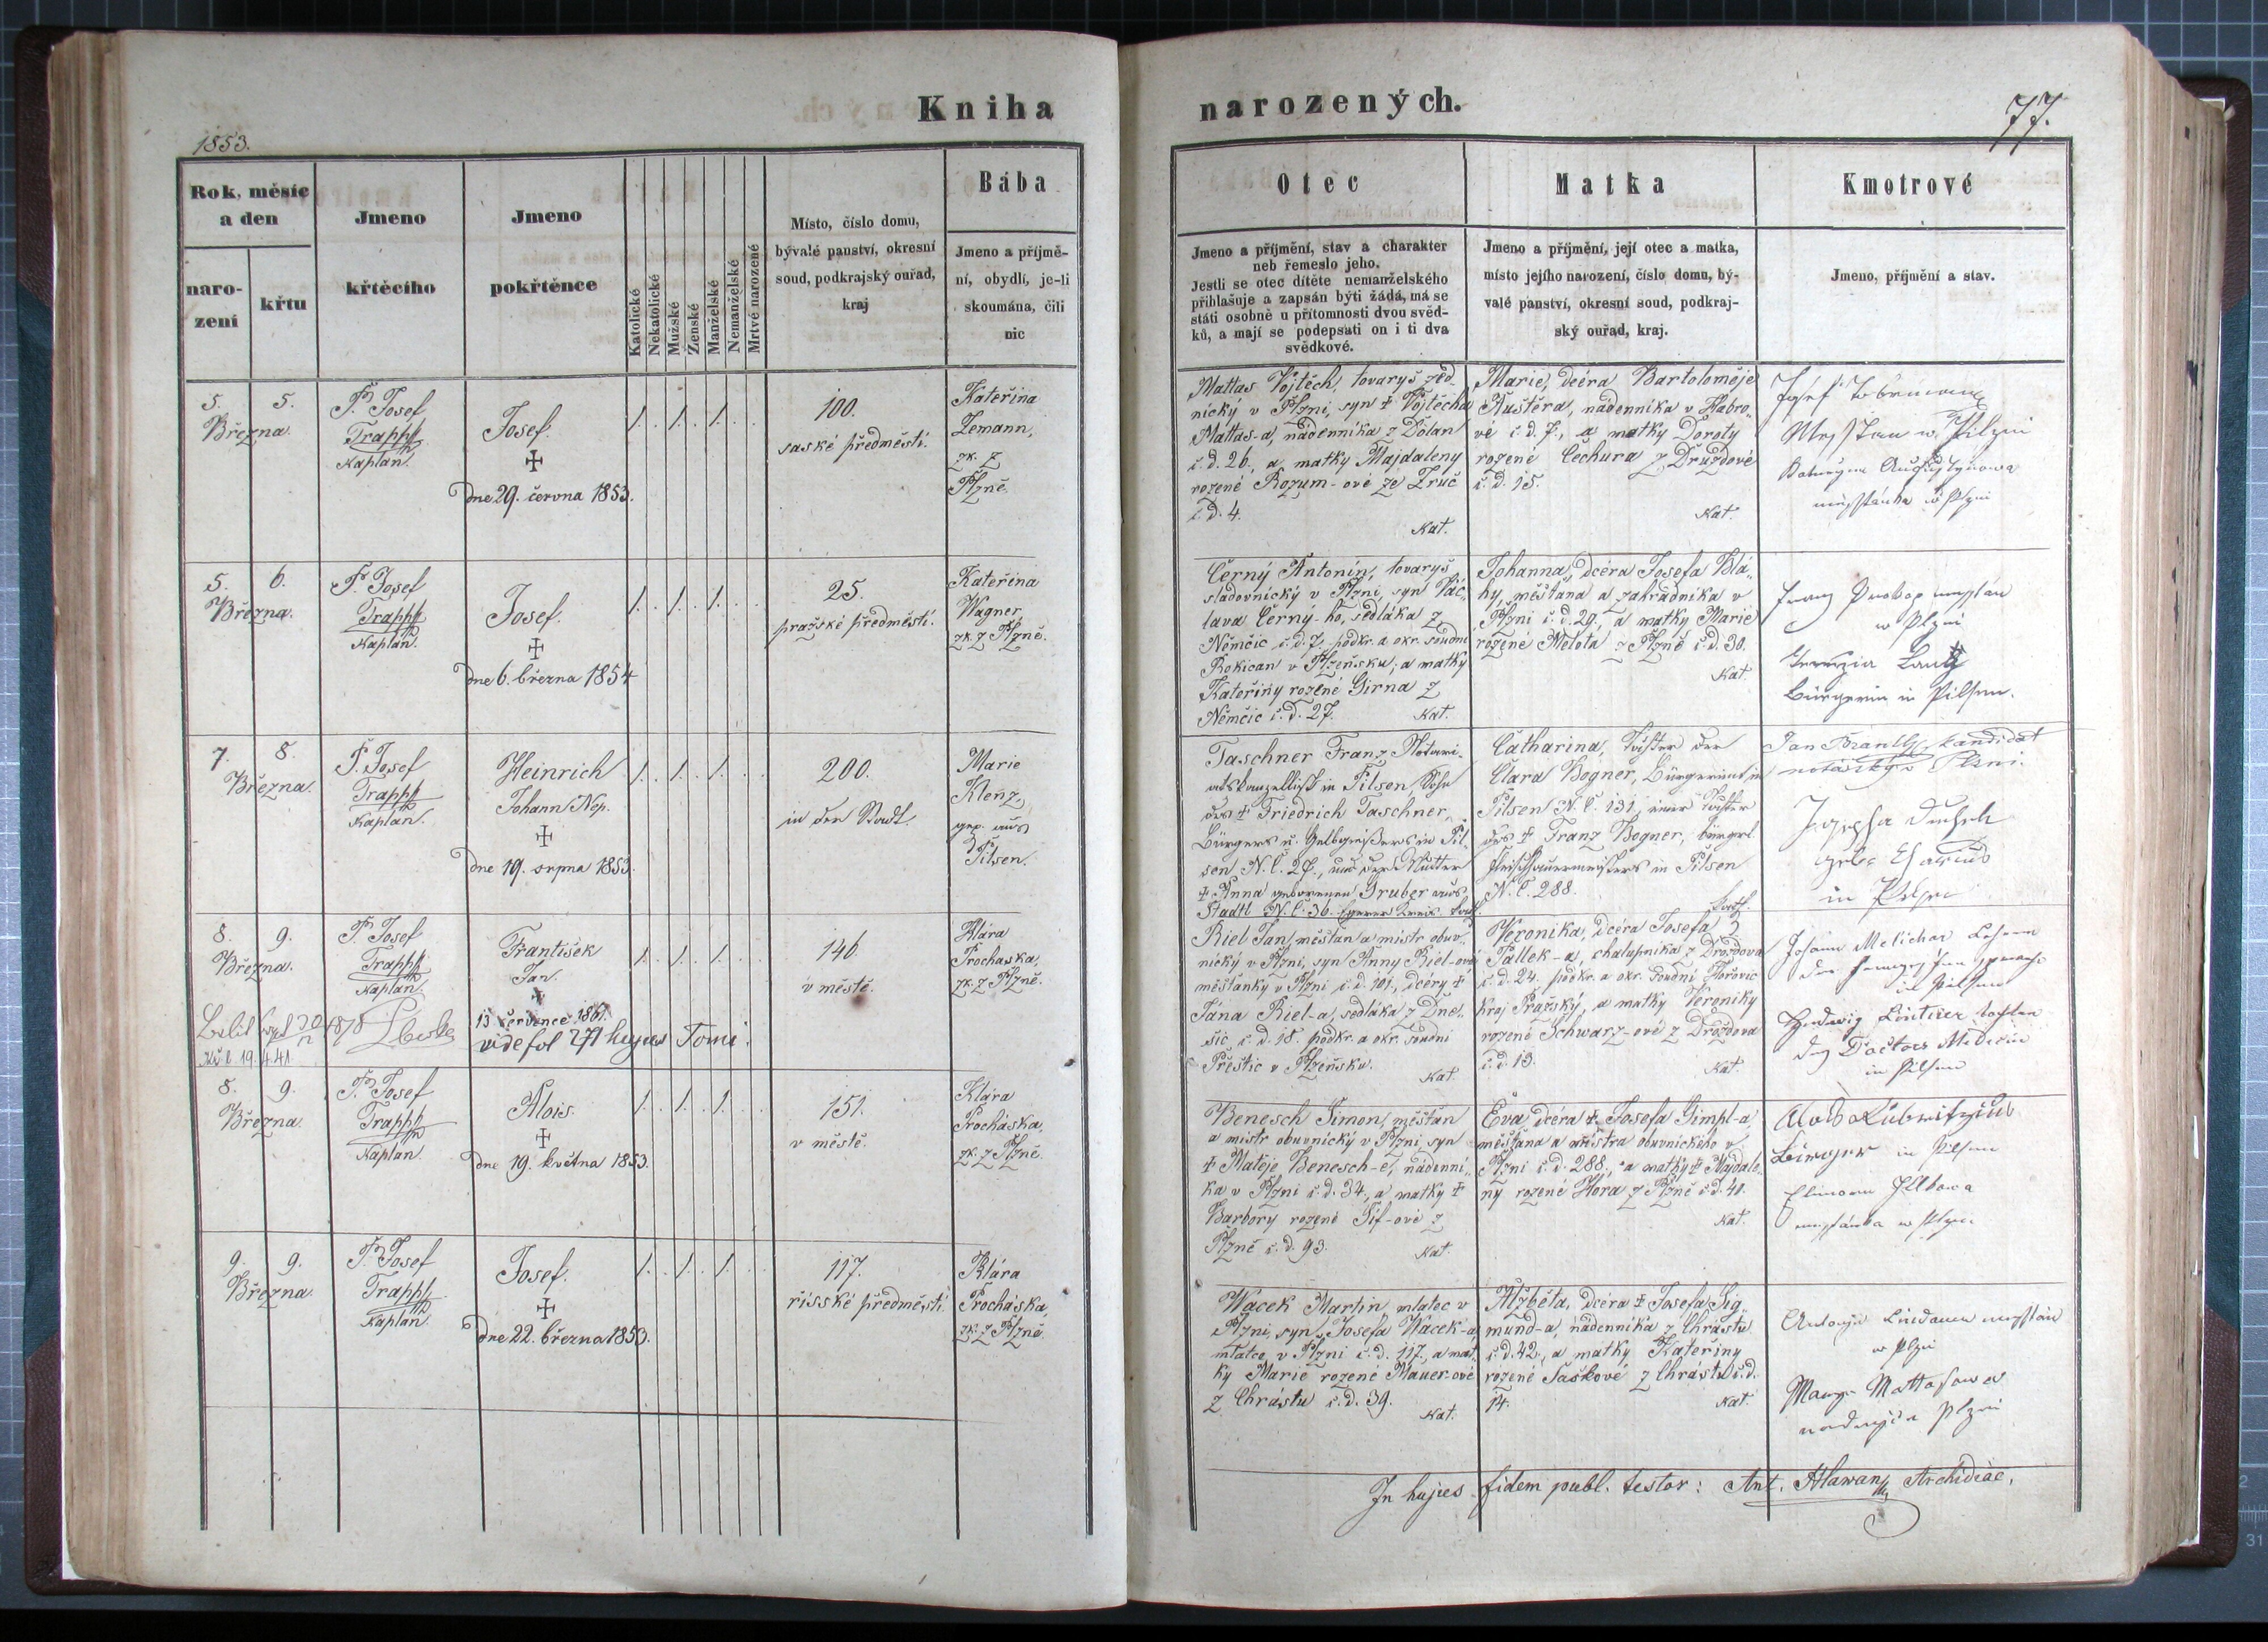 Kniha
narozených.
77.
1853.
Rok, měsíc
a den
naro-
zení
křtu
Jmeno
křtěcího
Jmeno
pokřtěnce
Katolické
Nekatolické
Mužské
Ženské
Manželské
Nemanželské
Mrtvé narozené
Místo, číslo domu,
bývalé panství, okresní
soud, podkrajský ouřad,
kraj
Bába
Jmeno a příjmě-
ní, obydlí, je-li
skoumána, čili
nic
Otec
Jmeno a příjmění, stav a charakter
neb řemeslo jeho.
Jestli se otec dítěte nemanželského
přihlašuje a zapsán býti žádá, má se
státi osobně u přítomnosti dvou svěd-
ků, a mají se podepsati on i ti dva
svědkové.
Matka
Jmeno a příjmění, její otec a matka,
místo jejího narození, číslo domu, bý-
valé panství, okresní soud, podkraj-
ský ouřad, kraj.
Kmotrové
Jmeno, příjmění a stav.
5. 5.
Března.
P. Josef
Trappl
Kaplan.
Josef.
✝
dne 29. června 1853.
1. 1. 1.
100.
saské předměstí.
Kateřina
Zemann,
zk. z
Plzně.
Mattas Vojtěch, tovaryš zed-
nický v Plzni, syn ✝ Vojtěcha
Mattas-a, nádenníka z Dolan
č. d. 26., a matky Majdaleny
rozené Rozum-ové ze Zruč
č. d. 4.
Kat.
Marie, dcéra Bartoloměje
Kuštěra, nádenníka v Habro-
vé č. d. 7., a matky Doroty
rozené Čechura z Druzdové
č. d. 15.
Kat.
5. 6.
Března.
P. Josef
Trappl
Kaplan.
Josef.
✝
dne 6. března 1854
1. 1. 1.
25.
pražské předměstí.
Kateřina
Wagner,
zk. z Plzně.
Černý Antonín, tovaryš
sladovnický v Plzni, syn Vác-
lava Černý-ho, sedláka z
Němčic č. d. 7., podkr. a okr. soudní
Rokican v Plzeňsku; a matky
Kateřiny rozené Girna z
Němčic č. d. 27.
Kat.
Johanna, dcéra Josefa Blá-
hy, měšťana a zahradníka v
Plzni č. d. 29., a matky Marie
rozené Melota z Plzně č. d. 30.
Kat.
Franz Prokop
w Plzni
Bürgerin in Pilsen.
7. 8.
Března.
P. Josef
Trappl
Kaplan.
Heinrich
Johann Nep.
✝
dne 19. srpna 1853.
1. 1. 1.
200.
in der Stadt.
Marie
Klenz,
gep. aus
Pilsen.
Taschner Franz, Notari-
atskanzellist in Pilsen, Sohn
des ✝ Friedrich Taschner,
Bürgers u. Gelbgießers in Pil-
sen N. C. 27., und der Mutter
✝ Anna geborenen Gruber aus
Stadtl N. C. 36. Egerer Kreis. Kath.
Catharina, Tochter der
Clara Bogner, Bürgerinn in
Pilsen N. C. 131., einer Tochter
des ✝ Franz Bogner, bürgerl.
Fleischhauermeisters in Pilsen
N. C. 288.
Kath.
Jan Brantl, kandidat
notářský v Plzni.
in Pilsen
8. 9.
Března.
P. Josef
Trappl
Kaplan.
František
Jan.
13 července 1861.
vide fol 271 hujus Tomi.
19. 4. 41.
1. 1. 1.
146.
v městě.
Klára
Procháska,
zk. z Plzně.
Riel Jan, měšťan a mistr obuv-
nický v Plzni, syn Anny Riel-ové
měšťanky v Plzni č. d. 101., dcéry ✝
Jána Riel-a, sedláka z Dne-
šic, č. d. 18. podkr. a okr. soudní
Přeštic v Plzeňsku.
Kat.
Veronika, dcéra Josefa
Pallek-a, chalupníka z Drozdova
č. d. 24. podkr. a okr. soudní Hořovic
kraj Pražský, a matky Veroniky
rozené Schwarz-ové z Drozdova
č. d. 13.
Kat.
Johann Melichar Lehrer
der
in Pilsen
Hedwig Lintner Tochter
des Doctors Medicin
in Pilsen
8. 9.
Března.
P. Josef
Trappl
Kaplan.
Alois.
✝
dne 19. května 1853.
1. 1. 1.
151.
v městě.
Klára
Procháska,
zk. z Plzně.
Benesch Šimon, měšťan
a mistr obuvnický v Plzni, syn
✝ Matěje Benesch-e, nádenní-
ka v Plzni č. d. 34., a matky ✝
Barbory rozené Sif-ové z
Plzně č. d. 93.
Kat.
Eva, dcéra ✝ Josefa Gimpl-a,
měšťana a mistra obuvnického v
Plzni č. d. 288., a matky ✝ Majdale-
ny rozené Hora z Plzně č. d. 41.
Kat.
Bürger in Pilsen
9. 9.
Března.
P. Josef
Trappl
Kaplan.
Josef.
✝
dne 22. března 1853.
1. 1. 1.
117.
říšské předměstí.
Klára
Procháska,
zk. z Plzně.
Wacek Martin, mlatec v
Plzni, syn Josefa Wacek-a,
mlatce v Plzni č. d. 117., a mat-
ky Marie rozené Mauer-ové
z Chrástu č. d. 39.
Kat.
Alžběta, dcéra ✝ Josefa Sig-
mund-a, nádenníka z Chrástu
č. d. 42., a matky Kateřiny
rozené Saškové z Chrástu č. d.
14.
Kat.
w Plzni
In hujus fidem publ. testor: Ant. Hlawan, Archidiac.